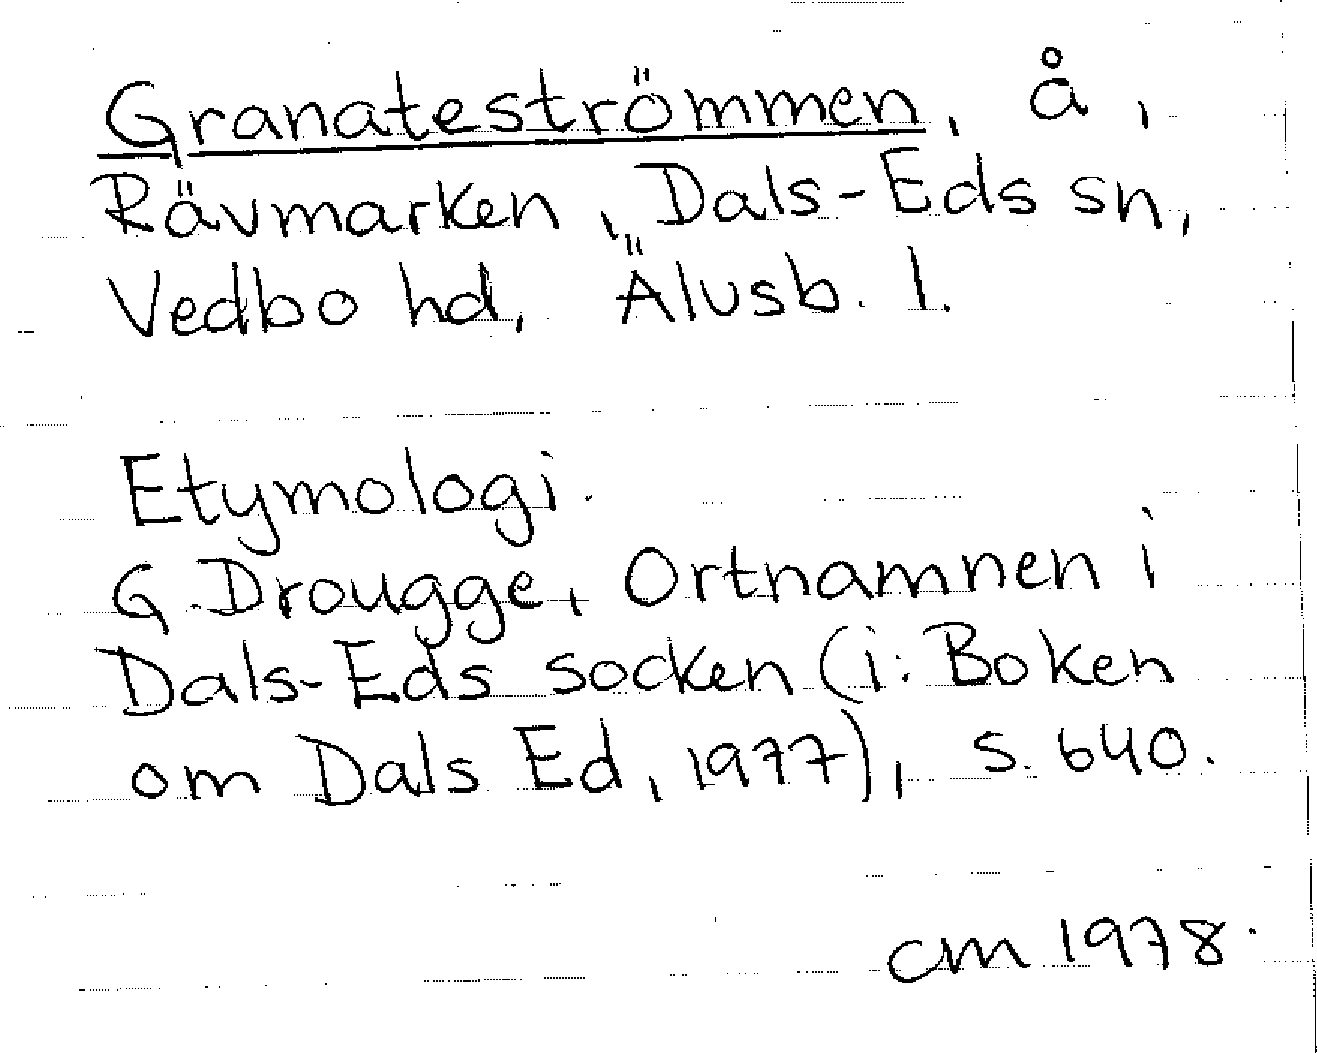 Granateströmmen, å,
Rävmarken, Dals-Eds sn,
Vedbo hd, Älvsb. l.
Etymologi.
G. Drougge, Ortnamnen i
Dals-Eds socken (i: Boken
om Dals Ed, 1977), s. 640.
cm 1978.